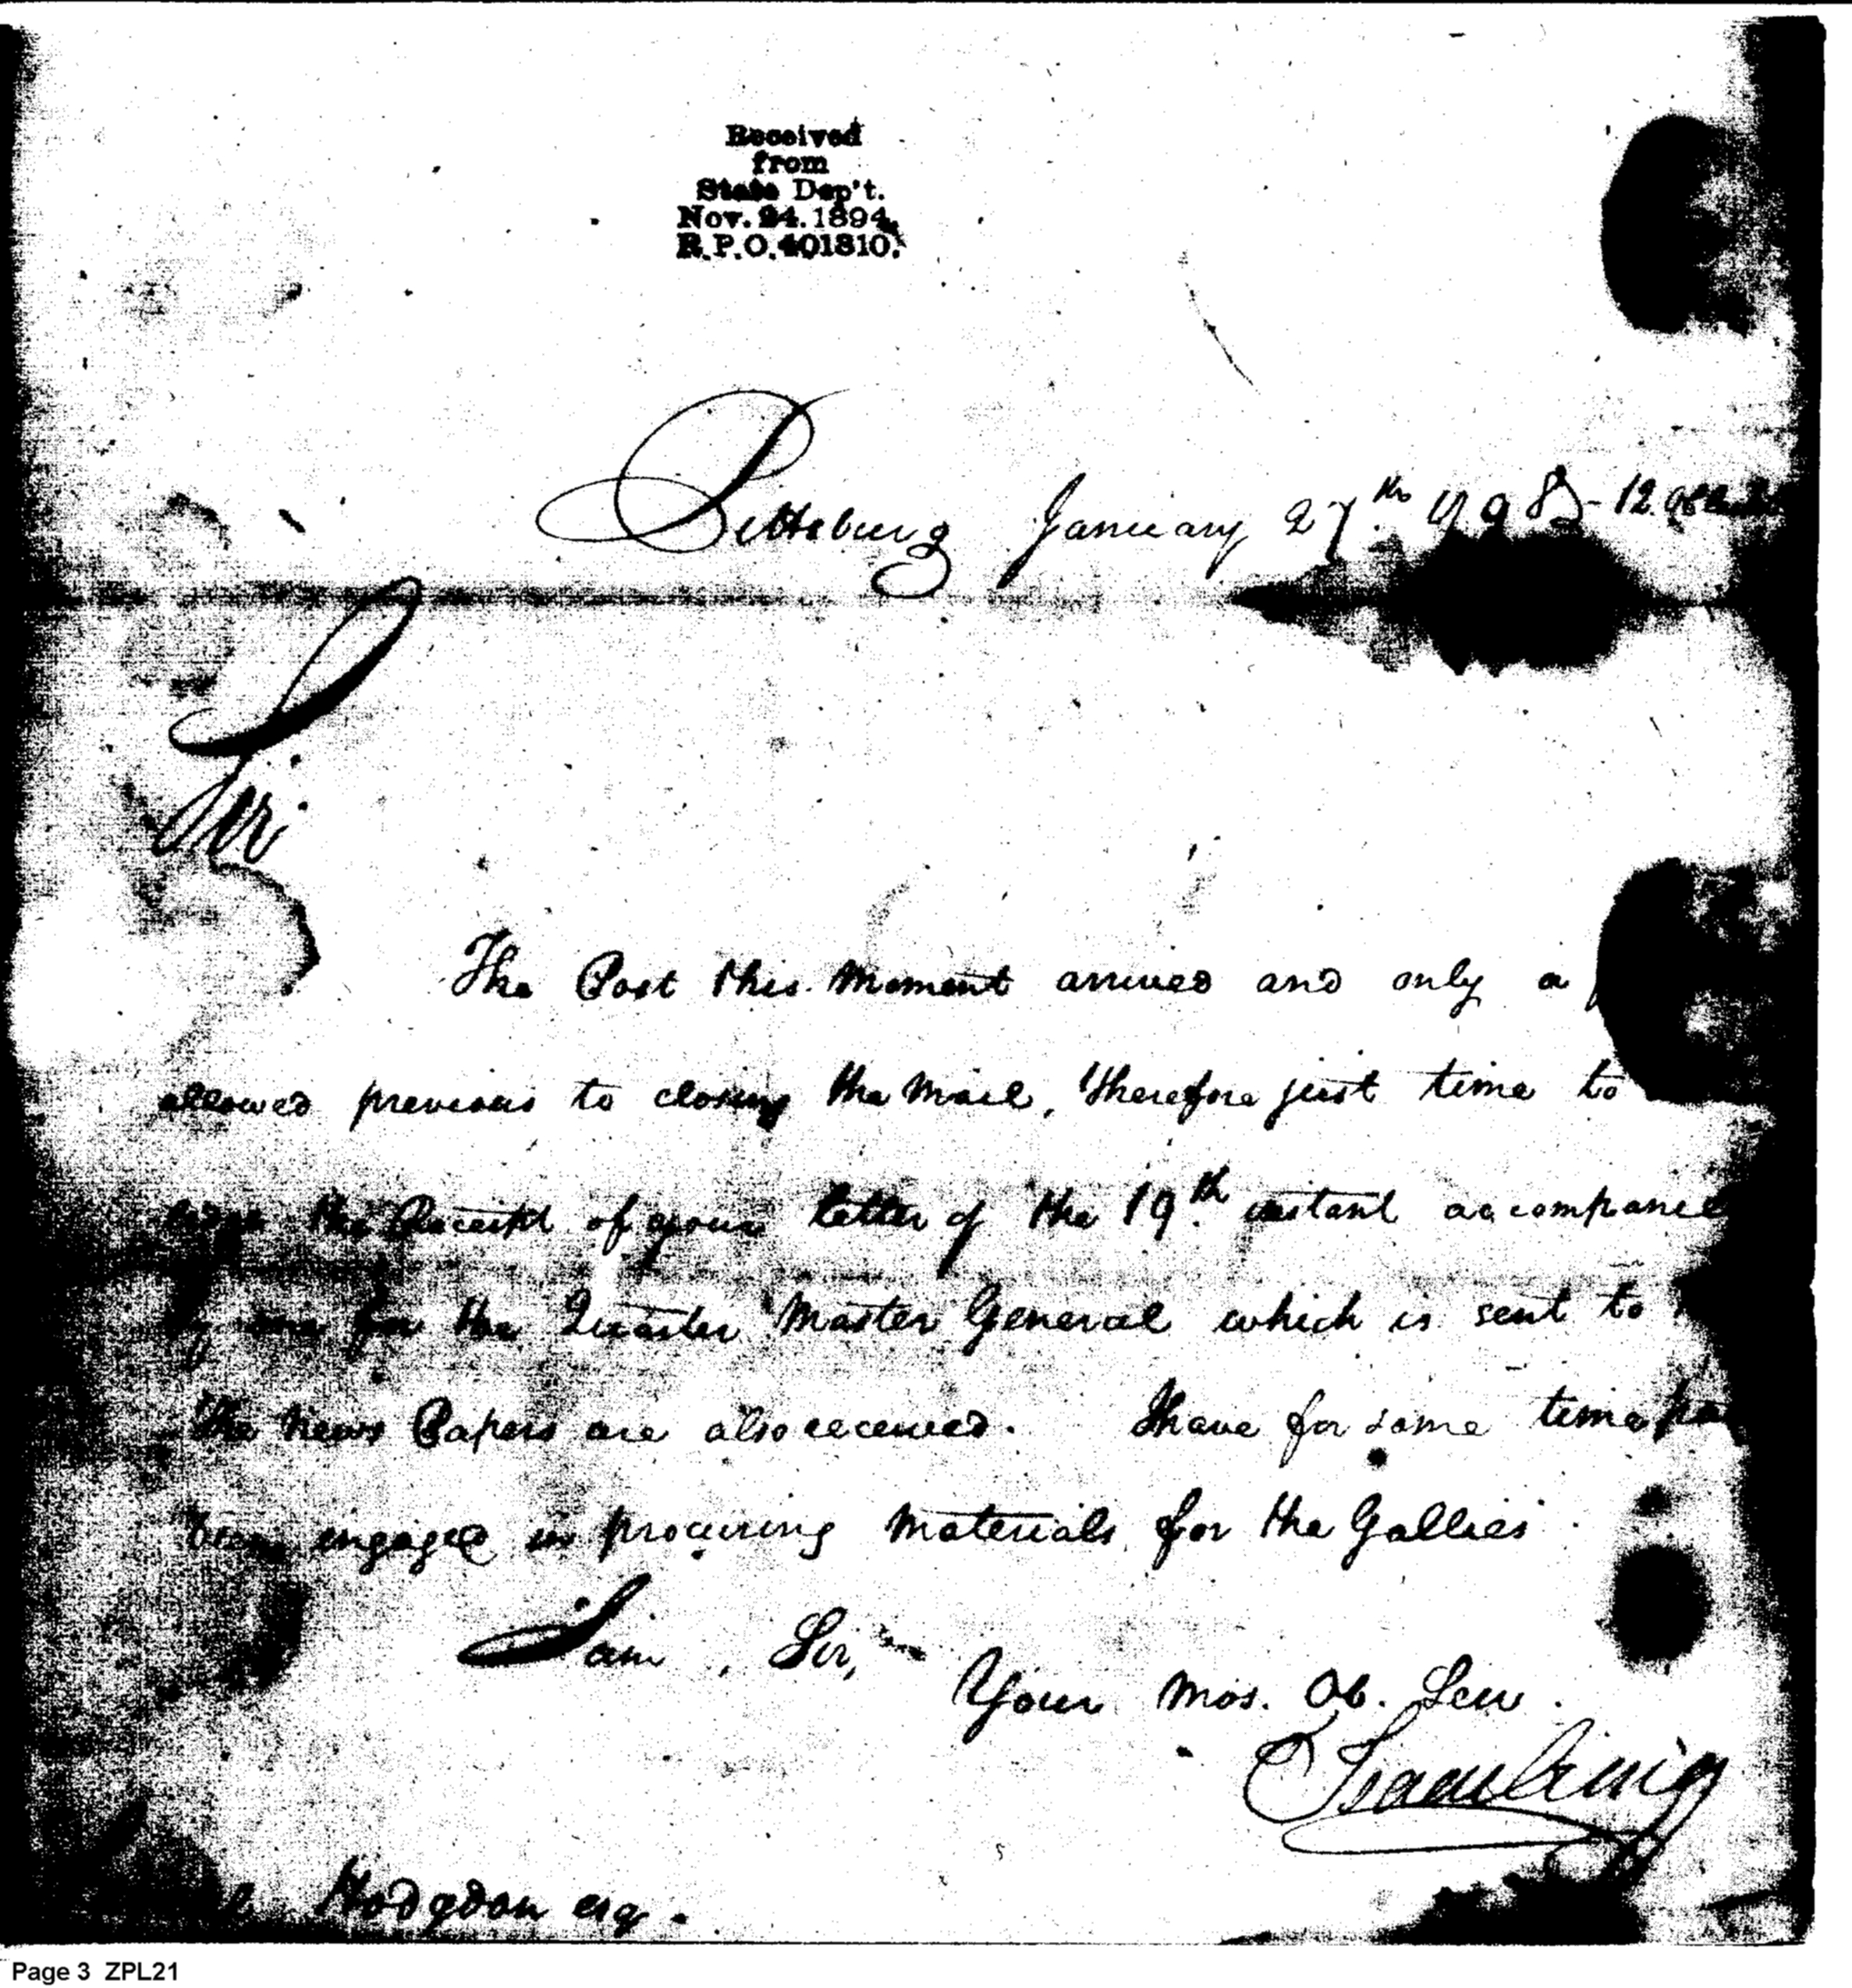 Received
from
State Dep't.
Nov. 24. 1894.
R.P.O. 401810.
Pittsburg January 27th 1798 - 12.
Sir
The Post this moment arrived and only a
allowed previous to closing the Mail, Therefore just time to
the Receipt of your letter of the 19th instant accompanie
by one for the Quarter Master General which is sent to
The News Papers are also received. I have for some time
been engaged in procuring Materials for the Gallies.
I am, Sir,
Your Mos. Ob. Serv.
Isaac Craig
Hodgdon esq.
Page 3 ZPL21